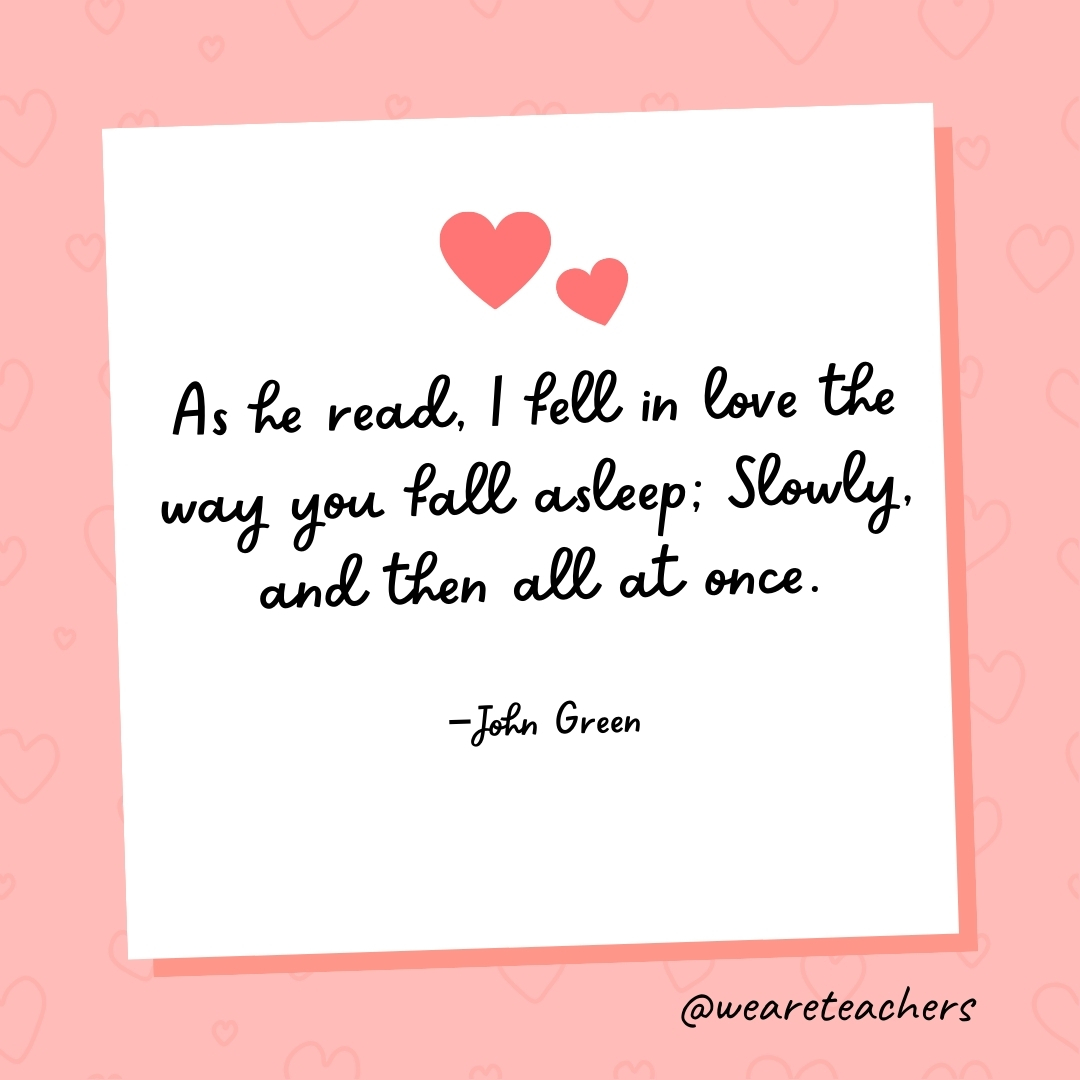 As he read, I fell in love the
way you fall asleep; Slowly,
and then all at once.
–John Green
@weareteachers